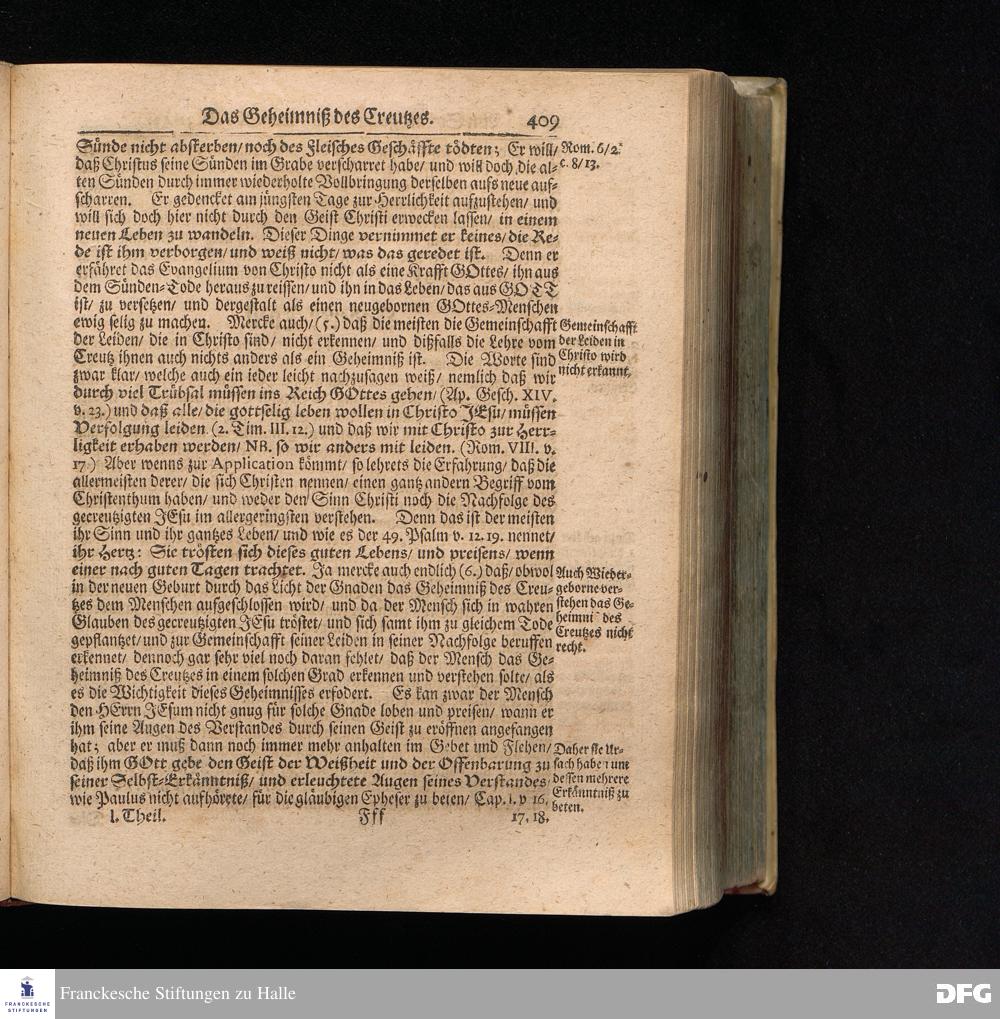 Das Geheimniß des Creutzes. 409
Sünde nicht absterben/ noch des Fleisches Geschäffte tödten; Er will/
daß Christus seine Sünden im Grabe verscharret habe/ und will doch die al-
ten Sünden durch immer wiederholte Vollbringung derselben aufs neue auf-
scharren. Er gedencket am jüngsten Tage zur Herrlichkeit aufzustehen/ und
will sich doch hier nicht durch den Geist Christi erwecken lassen/ in einem
neuen Leben zu wandeln. Dieser Dinge vernimmet er keines/ die Re-
de ist ihm verborgen/ und weiß nicht/ was das geredet ist. Denn er
erfähret das Evangelium von Christo nicht als eine Krafft GOttes/ ihn aus
dem Sünden-Tode heraus zu reissen/ und ihn in das Leben/ das aus GOTT
ist/ zu versetzen/ und dergestalt als einen neugebornen GOttes-Menschen
ewig selig zu machen. Mercke auch/ (5.) daß die meisten die Gemeinschafft
der Leiden/ die in Christo sind/ nicht erkennen/ und dißfalls die Lehre vom
Creutz ihnen auch nichts anders als ein Geheimniß ist. Die Worte sind
zwar klar/ welche auch ein ieder leicht nachzusagen weiß/ nemlich daß wir
durch viel Trübsal müssen ins Reich GOttes gehen/ (Ap. Gesch. XIV.
v. 23.) und daß alle/ die gottselig leben wollen in Christo JEsu/ müssen
Verfolgung leiden. (2. Tim. III. 12.) und daß wir mit Christo zur Herr-
ligkeit erhaben werden/ NB. so wir anders mit leiden. (Rom. VIII. v.
17.) Aber wenns zur Application kömmt/ so lehrets die Erfahrung/ daß die
allermeisten derer/ die sich Christen nennen/ einen gantz andern Begriff vom
Christenthum haben/ und weder den Sinn Christi noch die Nachfolge des
gecreutzigten JEsu im allergeringsten verstehen. Denn das ist der meisten
ihr Sinn und ihr gantzes Leben/ und wie es der 49. Psalm v. 12. 19. nennet/
ihr Hertz: Sie trösten sich dieses guten Lebens/ und preisens/ wenn
einer nach guten Tagen trachtet. Ja mercke auch endlich (6.) daß/ obwol
in der neuen Geburt durch das Licht der Gnaden das Geheimniß des Creu-
tzes dem Menschen aufgeschlossen wird/ und da der Mensch sich in wahren
Glauben des gecreutzigten JEsu tröstet/ und sich samt ihm zu gleichem Tode
gepflantzet/ und zur Gemeinschafft seiner Leiden in seiner Nachfolge beruffen
erkennet/ dennoch gar sehr viel noch daran fehlet/ daß der Mensch das Ge-
heimniß des Creutzes in einem solchen Grad erkennen und verstehen solte/ als
es die Wichtigkeit dieses Geheimnisses erfodert. Es kan zwar der Mensch
den HErrn JEsum nicht gnug für solche Gnade loben und preisen/ wann er
ihm seine Augen des Verstandes durch seinen Geist zu eröffnen angefangen
hat; aber er muß dann noch immer mehr anhalten im Gebet und Flehen/
daß ihm GOtt gebe den Geist der Weißheit und der Offenbarung zu
seiner Selbst-Erkänntniß/ und erleuchtete Augen seines Verstandes/
wie Paulus nicht aufhörete/ für die gläubigen Epheser zu beten/ Cap. 1. v 16.
I. Theil. Fff 17. 18.
Rom. 6/ 2.
c. 8/ 13.
Gemeinschafft
der Leiden in
Christo wird
nicht erkannt.
Auch Wieder-
geborne ver-
stehen das Ge-
heimni des
Creutzes nicht
recht.
Daher sie Ur-
sach haben um
dessen mehrere
Erkänntniß zu
beten.
FRANCKESCHE
STIFTUNGEN
Franckesche Stiftungen zu Halle
DFG